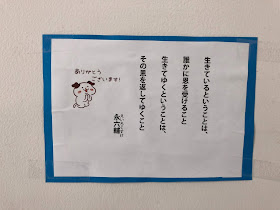 生きているということは、
誰かに恩を受けること
生きてゆくということは、
その恩を返してゆくこと
永六輔
ありがとう
ございます!